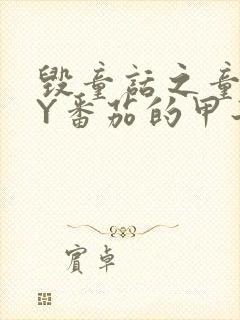 毁童話之童
Y番茄的甲
賓卓